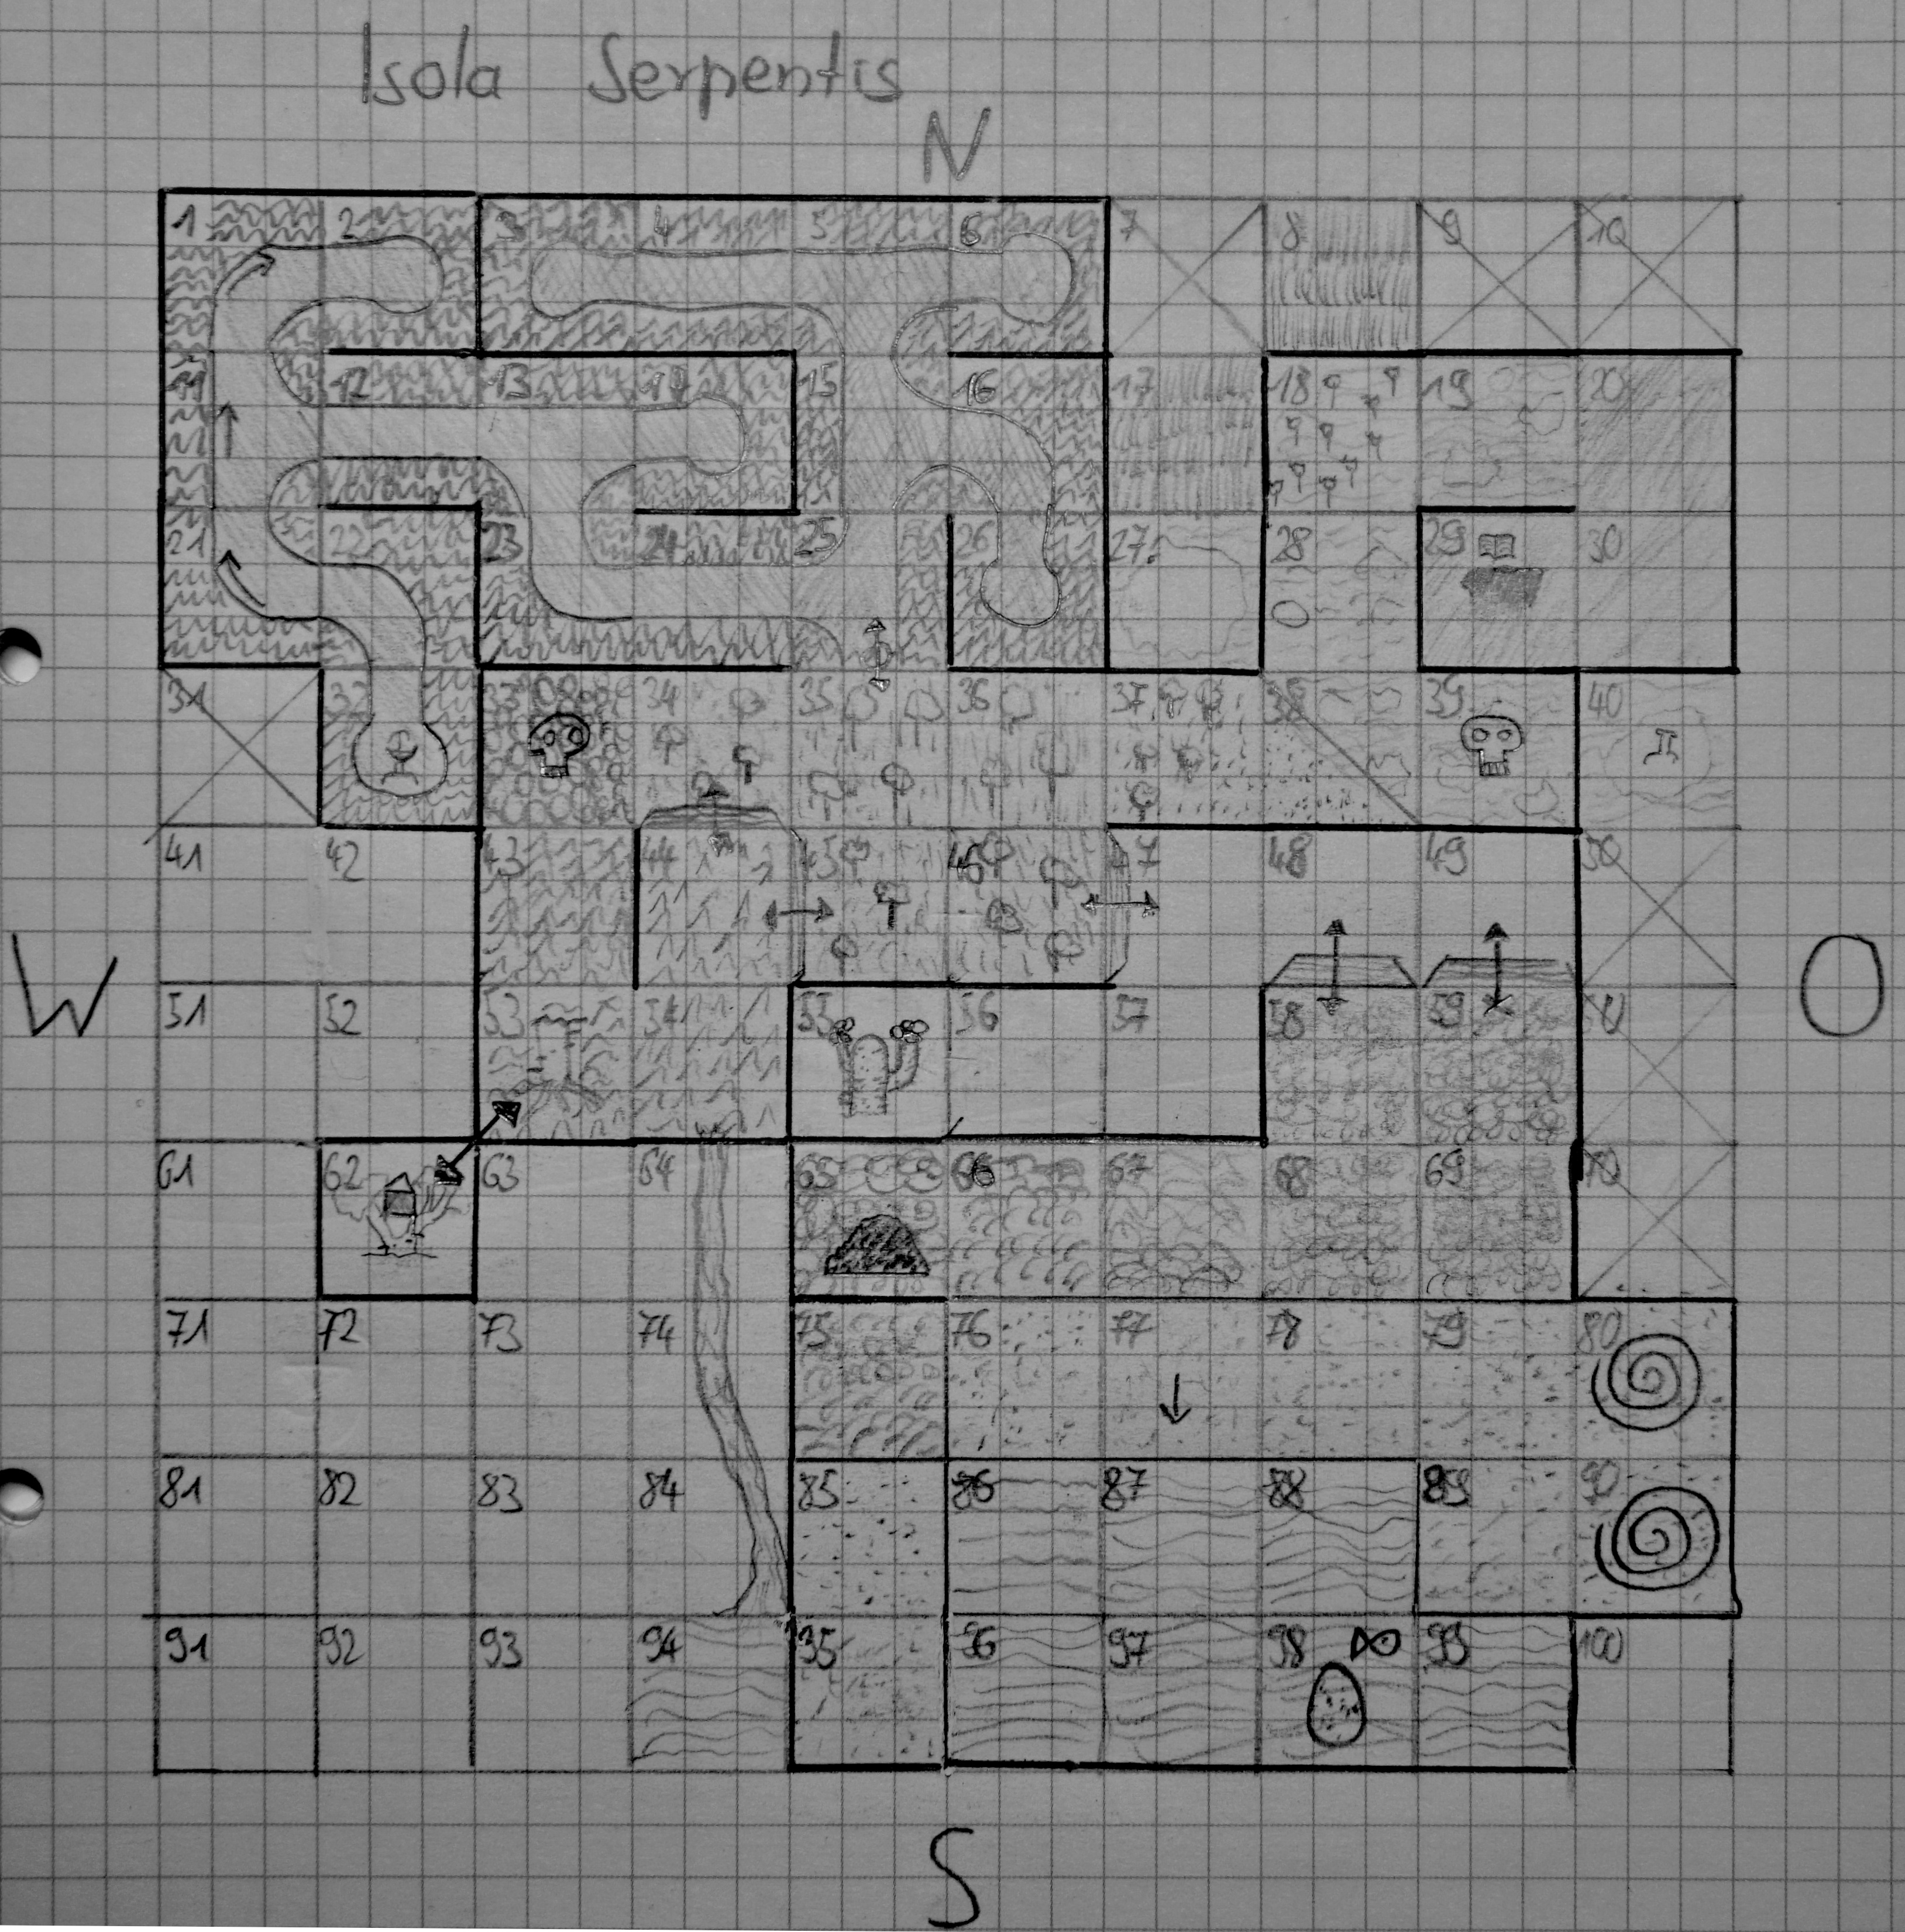 Isola Serpentis
N
1 2 3 4 5 6 7 8 9 10
11 12 13 14 15 16 17 18 19 20
21 22 23 24 25 26 27 28 29 30
31 32 33 34 35 36 37 38 39 40
41 42 43 44 45 46 47 48 49 50
W O
51 52 53 54 55 56 57 58 59
61 62 63 64 65 66 67 68 69 70
71 72 73 74 75 76 77 78 79 80
81 82 83 84 85 86 87 88 89 90
91 92 93 94 95 96 97 98 99 100
S